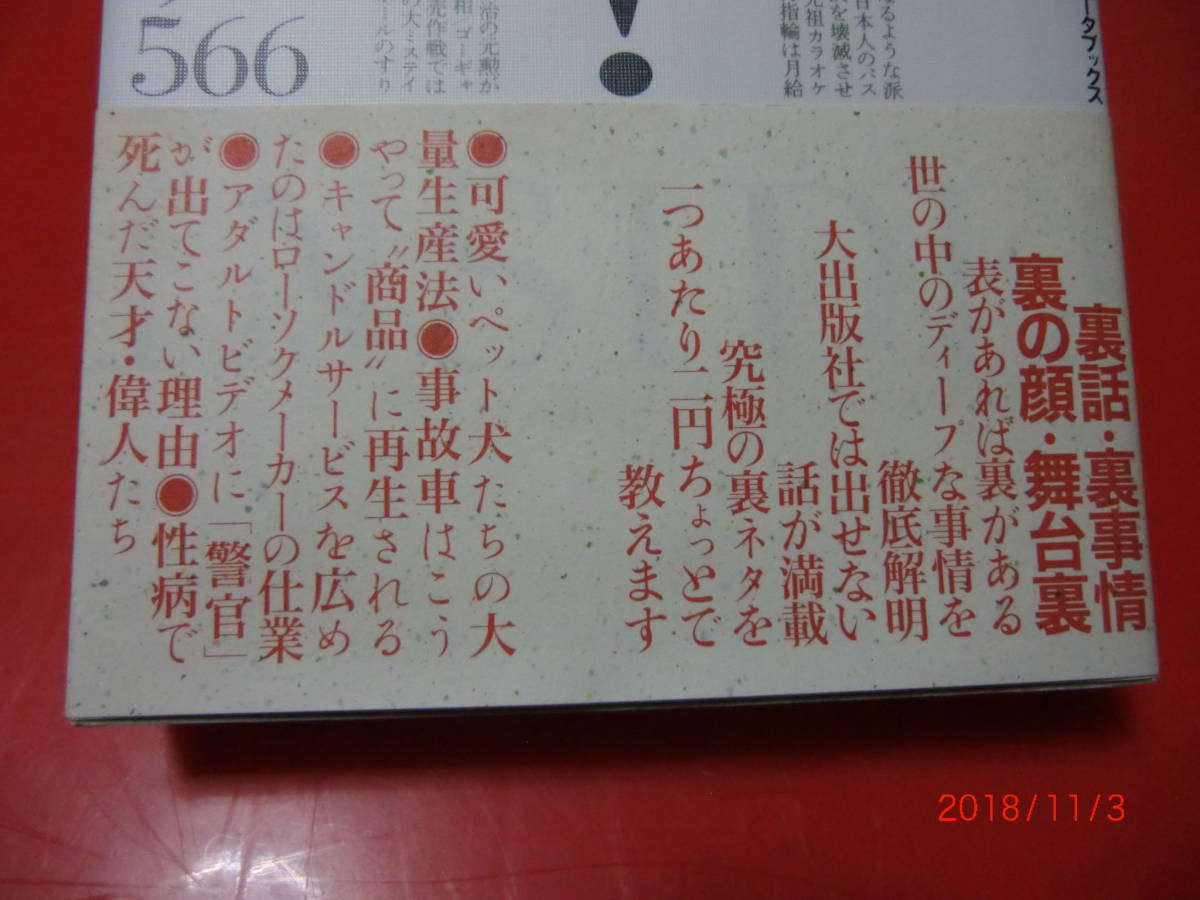 ータブックス
なるような派
日本人のバス
を壊滅させ
元祖カラオケ
指輪は月給
！
治の元勲が
相「ゴーギャ
売作戦では
の大ミステイ
ールのすり
566
裏話・裏事情
裏の顔・舞台裏
表があれば裏がある
世の中のディープな事情を
徹底解明
大出版社では出せない
話が満載
究極の裏ネタを
一つあたり二円ちょっとで
教えます
●可愛いペット犬たちの大
量生産法●事故車はこう
やって〝商品〟に再生される
●キャンドルサービスを広め
たのはローソクメーカーの仕業
●アダルトビデオに「警官」
が出てこない理由●性病で
死んだ天才・偉人たち
2018/11/3